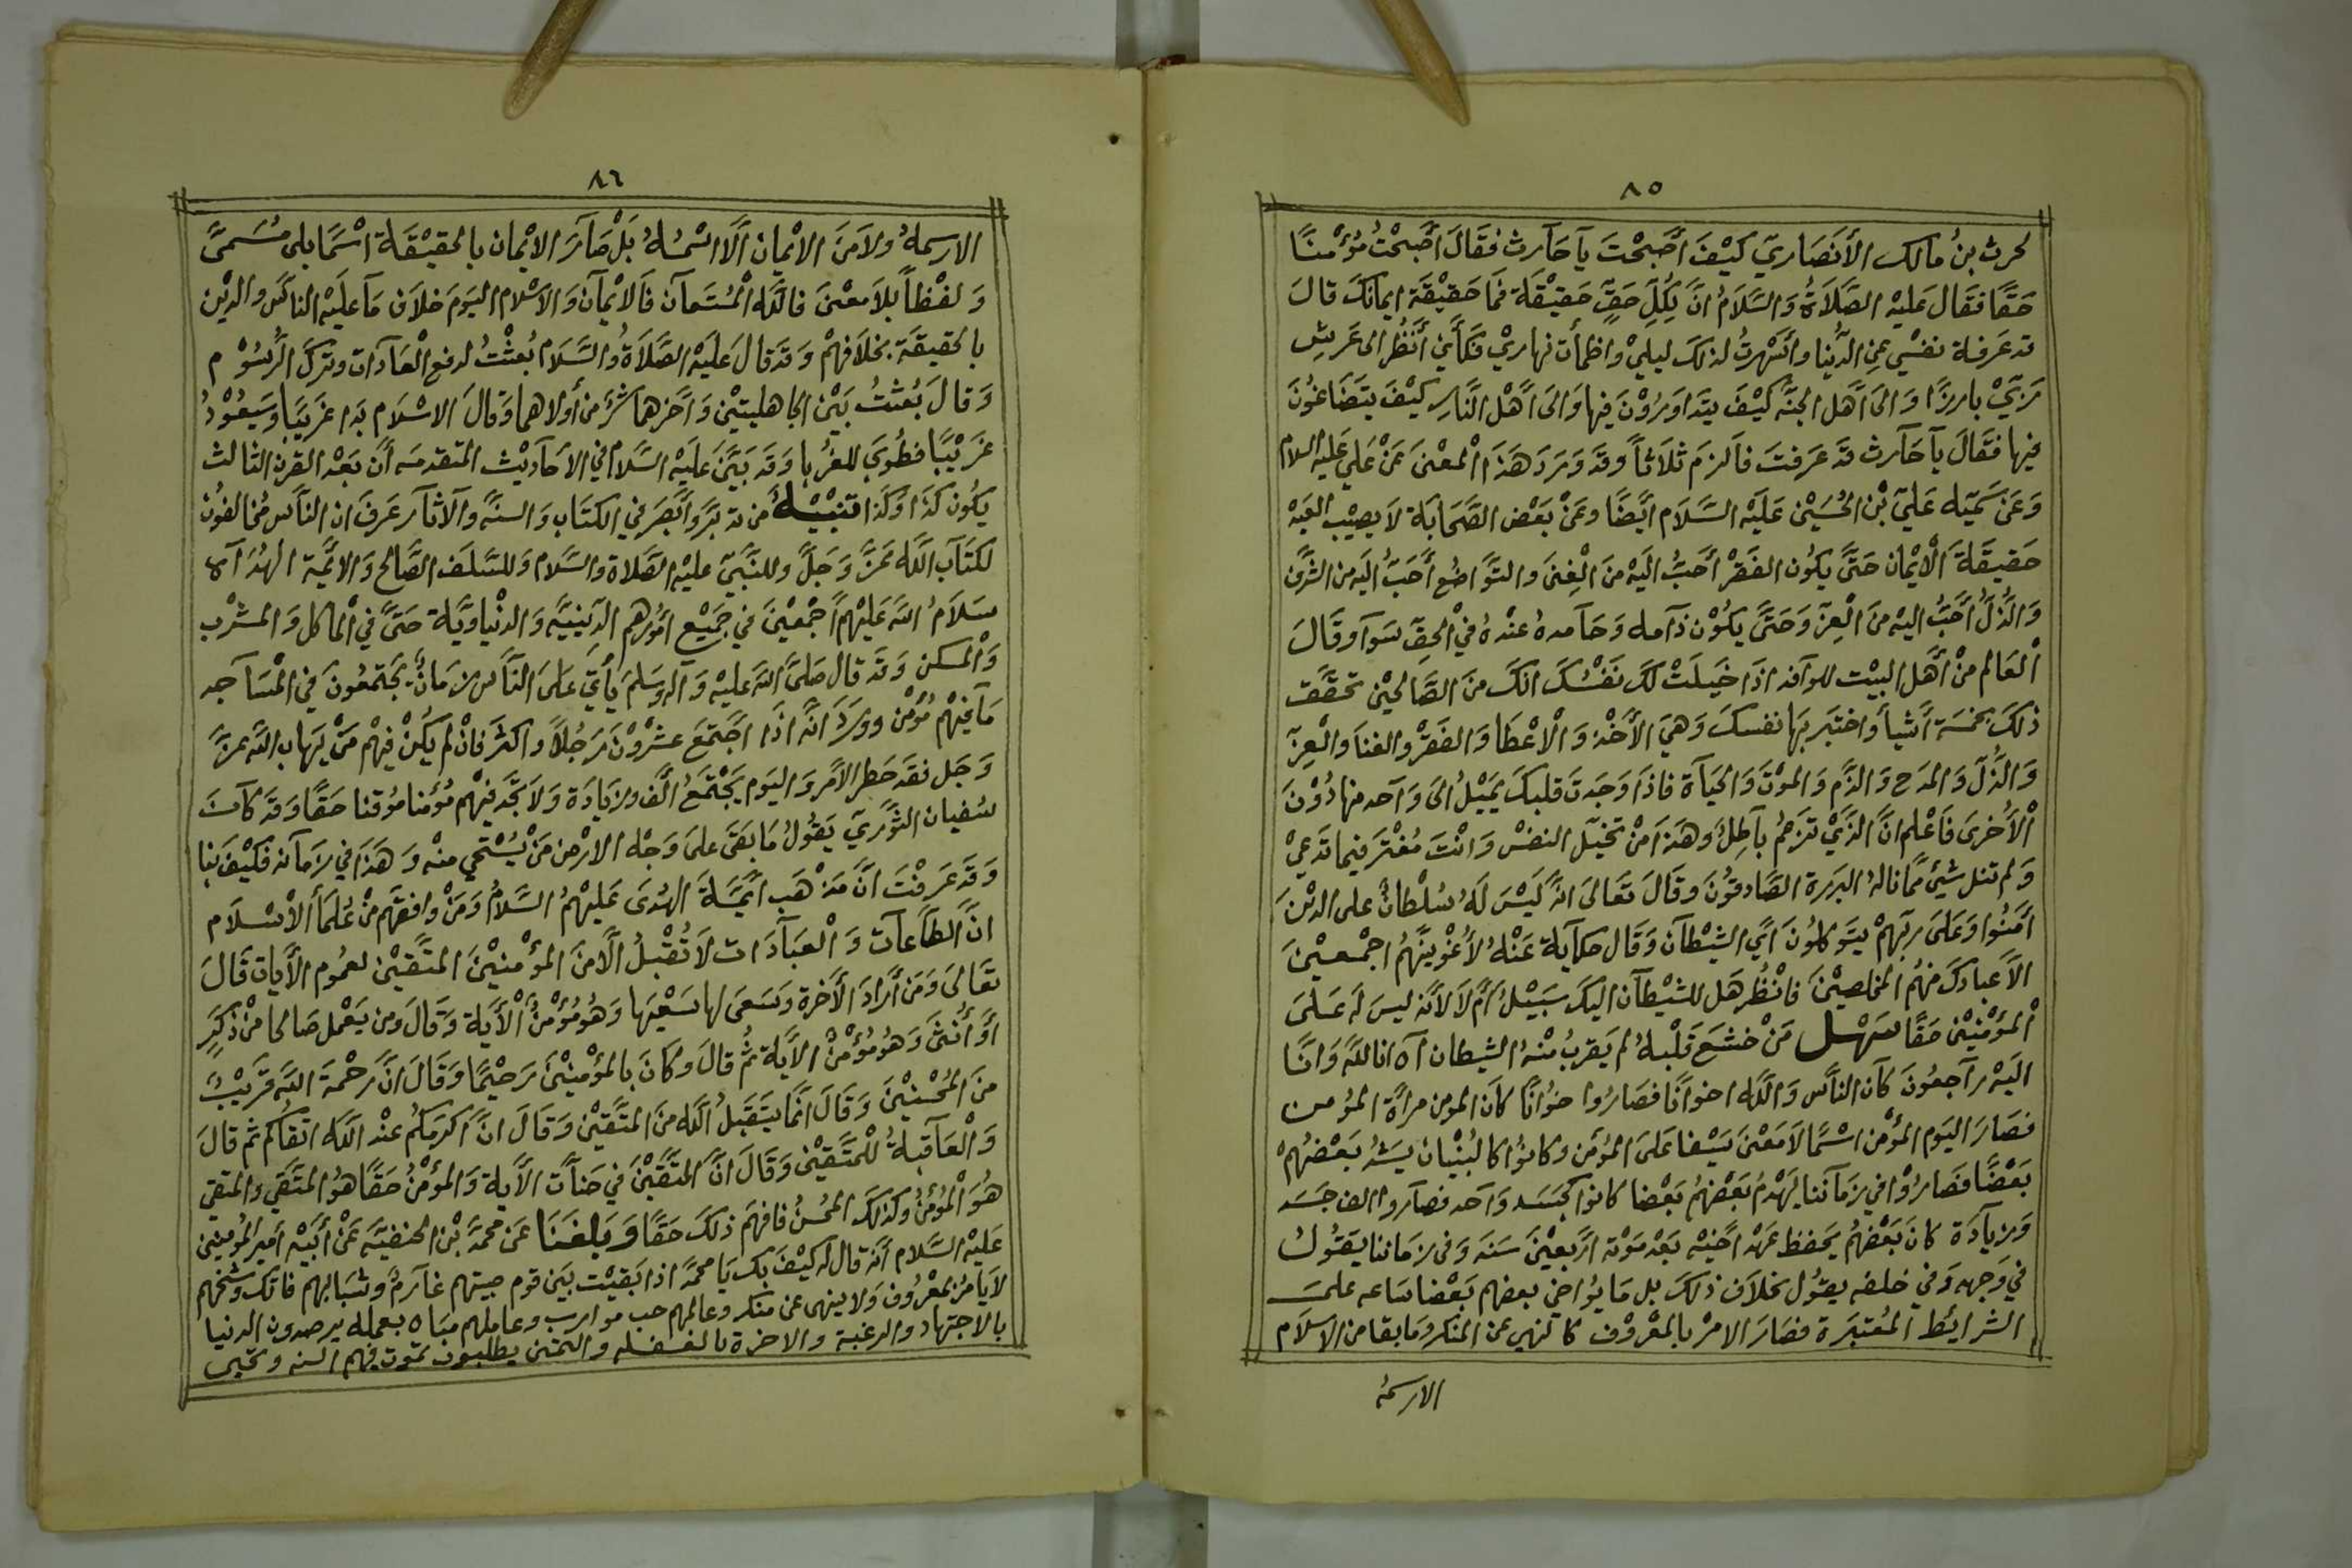 ٨٥
لحرث بنُ مالك الأنصاريّ كَيْفَ أَصْبَحْتَ يآ حَآرث فقَالَ أَصْبحْتُ مُؤْمنًا
حَقًا فقَال عَليْهِ الصَّلَاةُ وَالسَّلَامُ انَّ لِكُلِّ حَقٍّ حَقيْقَة فَمَا حَقيْقَة ايمانكَ قالَ
قد عَرفة نفسْي عِن الدُّنيا وأسْهرتُ لذلكَ ليليْ واظمأت نهاريْ فكأَنّي أَنْظُر الى عَرشِ
رَبّيْ بارزًا وَالىَ اَهْل الجنَّه كيْفَ يتَزاوَرُوْنَ فيها وَالىَ اَهْل النَّارِ كيْفَ يتَضَاغُونَ
فيها فقَالَ يآ حَآرث قد عَرفتَ فاَلزمَ ثلَاثاً وقدَ وَرَدَ هَذَا اْلمعْنىَ عَنْ عَلي عَليْه السلام
وَعَنْ سَميّه عَليّ بْن الحُسَيْن عَليْه السَّلَام ايَضًا وعَنْ بَعْض الصَّحَابَة لاَ يصِيْب العَبْد
حَقيقَة اْلايْمان حَتىَّ يكُون الفَقْر أحَبُّ اليْه منَ اْلغِنىَ والتوَّاضُع أحَبُّ اليْه من الشرَّف
وَالذُّلُّ أَحَبُّ اليْه منَ اْلعِزّ وَحَتىَّ يكُوْن ذآمه وَحَآمدهُ عنْدهُ فيْ الحقّ سَوآ وقَالَ
اْلعَالم منْ أَهَل البيْت للوآفد اذَا خَيلَتْ لكَ نَفْسُكَ انكَ منَ الصَّالحيْن تحقَّقت
ذلكَ بخمْسَة أَشْيآ وَاختبَر بهَا نفسكَ وَهيَ الأَخْذ وَالْاعْطا وَالفَقرْ والغنَا والْعِزّ
وَالذُّلّ وَالمدَح وَالذَّم وَالموْت وَالحيَآة فاذَا وَجَدتَ قلبكَ يميْلُ الىَ وَآحد منها دُوْنَ
اْلأُخرىَ فَاعْلم انَّ الذَّيْ تزعمُ بآطِلٌ وهَذَا منْ تخيّل النفسْ وَانْتَ مُغْترّ فيما تدَعيْ
وَلم تنل شيْئً ممَّا نالهُ البرَرة الصَّادقوُنَ وقَالَ تعَالىَ انهَّ ليْسَ لَهُ سُلْطانٌ على الذيْنَ
اَمنوُا وَعَلىَ ربّهمْ يتوَكلُونَ اَي الشيْطآن وَقَال حكآية عَنْهُ لأُغْوينّهُم اجْمعيْنَ
الاَّ عبادكَ منهُم المخلصيْنَ فانْظُر هَل للشيْطآن اليكَ سَبيْلٌ أَمْ لاَ لانَّه ليسَ لَه عَلىَ
اْلمؤْمنيْن حَقًا سَهْل مَنْ خشعَ قَلْبهُ لم يَقربُ منْهُ الشيطان آه انا للهَّ وَانَّا
اليْه رآجعُونَ كآن الناَّس وَاللَّه اخوَانًا فصَارُوا خوُانًا كاَن المومن مرأَة المؤمن
فصَارَ اليَوم المؤْمن اسْمًا لاَ مَعْنىَ يسْفا عَلىَ المؤمن وكانوُا كا لبُنْيان يشُدُ بَعْضهُمْ
بَعْضًا فصَارُوْا في زمَآننا يَهْدمُ بَعْضهُم بَعْضًا كانوا كجَسَد وَآحد فصآروا الف جَسَد
وَزيآدَة كانَ بَعْضهُمْ يحَفظ عَهْد اَخيْه بَعْد مَوْته اَرْبعيْنَ سَنَه وَفى زمَاننا يقُولُ
في وَجهه وَفي خلفه يقوُل بخلآف ذلكَ بل مَا يُواخي بعضهم بَعْضا ساعه على
الشرآئِط المُعْتبَرة فصَارَ الامْر بالمعْروْف كا لنهي عن المنكر وَمَا بقا من الاسلَام
الارسمُه
٨٦
الارسمهُ ولاَ منَ الايْمان اَلّا اسْمُهُ بَلْ صَآرَ الايْمان بالحقيْقَة اسْمًا بلى مُسَمىَّ
وَلفْظاً بلاَ معْنىَ فاللَّه الْمُسْتَعآن فَالايْمآن وَالاسْلام اليوَم خلاَف مَآ عليْه الناَّس والدّيْن
بالحقيقَة بخلاَفهمْ وَقدَ قالَ عَليْه الصَّلاَةُ والسَّلَام بُعثْتُ لدفع الْعَآدات وترْك الرُّسُوْم
وَقالَ بُعثتُ بَيْن الجاهليتيْن وَآخرهما شرٌّ من أولاهما وَقالَ الاسْلَام بدَا غرَيبًا وَسَيعُوْدُ
غرَيْبًا فطُوبَى للغُربا وَقدَ بيَّنَ عَليْه السَّلام في الاحآديْث المتقدمه أنَّ بَعْد القرن الثالث
يكُون كذَا وَكذَا تنْبيْهٌ من تدبرَّ وَأبصَر في الكتَاب وَالسنَّه والآثآر عَرفَ ان النَّاس مُخالفوُن
لكتَآب اللَّه عَزَّ وَجَلَّ وللنَّبيّ عليْه الصَّلاة والسَّلام وَللسَّلف الصَّالح وَالائمَّة الهُدآه
سَلَامُ اللهَّ عَليْهم أَجْمعيْنَ في جَميْع امُوْرهم الدّينيَّه وَالدنْياويَّة حَتىَّ في اْلماكل وَالمشْرب
وَاْلمسكن وَقدَ قال صَلىَّ اللهَّ عَليْه وَآله وَسَلمَ يأْتي عَلىَ الناَّس زمَانٌ يجْتمعُونَ في الْمسَاجد
مَآ فيْهم مُؤْمن ووَردَ انَّه اذَا اجْتمَعَ عشْروْن رَجُلاً واكثرَ فانْ لم يكُنْ فيْهمْ مَنْ يَهابُ اللهَّ عزَّ
وَجَل فقدَ حَطر الامْر وَاليوَم يجْتمعُ ألْف وزيادَة وَلاَ تجَّد فيْهم مُؤمنا مُوقنا حَقًا وَقدَ كآنَ
سُفيان الثوَّريّ يَقُولُ مَا بقىَ علىَ وَجْه الارْض مَنْ يسْتحي منْه وَهَذَا في زمَآنه فكيْفَ بنا
وَقدَ عَرفْتَ انَّ مذْهَب ائِمَّةَ الهُدىَ عَليْهمُ السَّلامُ وَمَنْ وافقهَم منْ عُلمآءَ الاْسْلاَم
انَّ الطَّآعآت وَالْعبآدَات لاَ تُقْبلُ الاَّ منَ المؤْمنيْنَ المتَّقيْن لعمُوم الأيات قَالَ
تعَالىَ وَمنَ أَرادَ الأَخرةَ وَسَعىَ لها سَعْيَها وَهُو مُؤْمنٌ اْلأَيَة وَقَالَ ومن يَعْمل صَالحا منْ ذَكَرٍ
أَوْ أُنْثىَ وَهوُ مُؤْمنٌ الاَيَة ثمُ قالَ وكانَ بالمؤْمنيْنَ رَحيْمًا وَقَالَ انَّ رحْمةَ اللهَّ قريْبٌ
منَ المُحْسنيْنَ وَقَالَ انمَّا يتقَبلُ اللَّه منَ المتَّقيْن وَقَالَ انَّ اكْرمَكمُ عنْد اللَّه اتقاَكم ثم قالَ
وَالْعآقبةُ للْمتَّقيْن وَقَالَ انَّ المتَّقيْنَ في جَنآت الاَية وَالمؤْمنُ حَقًا هوُ المتقَي والمتقي
هُوَ الْمؤمنُ وكذلكَ المُحسنُ فافهَم ذلكَ حَقًا وَبَلغَنَا عَن محمَّد بْن الحنفيَّه عَنْ أَبيْه أمير المؤمنين
عَليْه السَّلام أَنَه قال لَه كيْفَ بكَ يَا محمدَّ اذا بَقيْت بيَن قوم صبيّهم غآرمٌ وشبابهُم فاتك وشيخهم
لاَ يأمرُ بمعْروُف وَلا ينهى عن منكر وعالمهم خب موارب وعاملهم بعمله يرصدون الدنيا
بالاجتهاد والرغبة والاخرة بالغفله والتمني يطلبون تموت فيهم السنه وتحيى